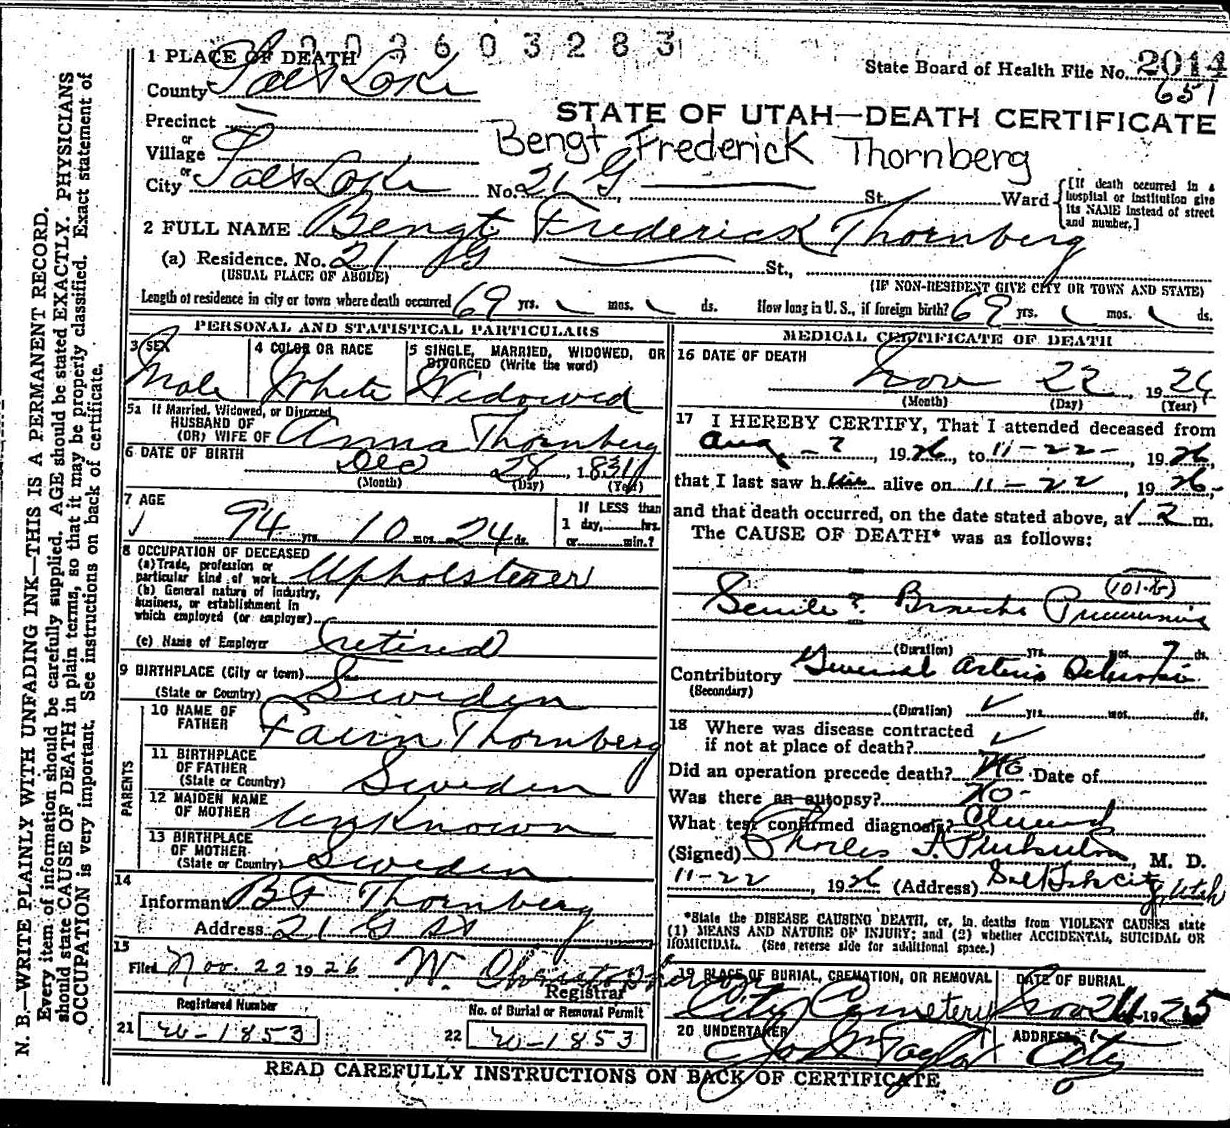 003603283
1 PLACE OF DEATH
State Board of Health File No. 2014
651
County Salt Lake
STATE OF UTAH—DEATH CERTIFICATE
Precinct
or
Village
Bengt Frederick Thornberg
or
City Salt Lake No. 21 G St. Ward
[If death occurred in a hospital or institution give its NAME instead of street and number.]
2 FULL NAME Bengt Frederick Thornberg
(a) Residence. No. 21 G St.,
(USUAL PLACE OF ABODE) (IF NON-RESIDENT GIVE CITY OR TOWN AND STATE)
Length of residence in city or town where death occurred 69 yrs. mos. ds. How long in U. S., if foreign birth? 69 yrs. mos. ds.
PERSONAL AND STATISTICAL PARTICULARS
3 SEX 4 COLOR OR RACE 5 SINGLE, MARRIED, WIDOWED, OR DIVORCED (Write the word)
Male White Widowed
5a If Married, Widowed, or Divorced
HUSBAND OF
(OR) WIFE OF Anna Thornberg
6 DATE OF BIRTH Dec 28 1831
(Month) (Day) (Year)
7 AGE If LESS than
94 yrs. 10 mos. 24 ds. 1 day, hrs.
or min.?
8 OCCUPATION OF DECEASED
(a) Trade, profession or
particular kind of work Upholsterer
(b) General nature of industry,
business, or establishment in
which employed (or employer)
(c) Name of Employer retired
9 BIRTHPLACE (City or town)
(State or Country) Sweden
PARENTS
10 NAME OF
FATHER Thornberg
11 BIRTHPLACE
OF FATHER
(State or Country) Sweden
12 MAIDEN NAME
OF MOTHER Unknown
13 BIRTHPLACE
OF MOTHER
(State or Country) Sweden
14
Informant B F Thornberg
Address 21 G St
15
Filed Nov. 22 1926 W.
Registrar
Registered Number No. of Burial or Removal Permit
21 w-1853 22 w-1853
MEDICAL CERTIFICATE OF DEATH
16 DATE OF DEATH
Nov 22 1926
(Month) (Day) (Year)
17 I HEREBY CERTIFY, That I attended deceased from
Aug - ? 1926, to 11-22-, 1926,
that I last saw him alive on 11-22, 1926,
and that death occurred, on the date stated above, at 2 m.
The CAUSE OF DEATH* was as follows:
Senile Broncho Pneumonia
(Duration) yrs. mos. 7 ds.
Contributory General Arterio Sclerosis
(Secondary)
(Duration) yrs. mos. ds.
18 Where was disease contracted
if not at place of death?
Did an operation precede death? No Date of
Was there an autopsy? No-
What test confirmed diagnosis? Clinical
(Signed) Charles F., M. D.
11-22, 1926 (Address) Salt Lake City, Utah
*State the DISEASE CAUSING DEATH, or, in deaths from VIOLENT CAUSES state
(1) MEANS AND NATURE OF INJURY; and (2) whether ACCIDENTAL, SUICIDAL OR
HOMICIDAL. (See reverse side for additional space.)
19 PLACE OF BURIAL, CREMATION, OR REMOVAL DATE OF BURIAL
City Cemetery Nov 1925
20 UNDERTAKER ADDRESS
Taylor City
READ CAREFULLY INSTRUCTIONS ON BACK OF CERTIFICATE
N. B.—WRITE PLAINLY WITH UNFADING INK—THIS IS A PERMANENT RECORD.
Every item of information should be carefully supplied. AGE should be stated EXACTLY. PHYSICIANS
should state CAUSE OF DEATH in plain terms, so that it may be properly classified. Exact statement of
OCCUPATION is very important. See instructions on back of certificate.